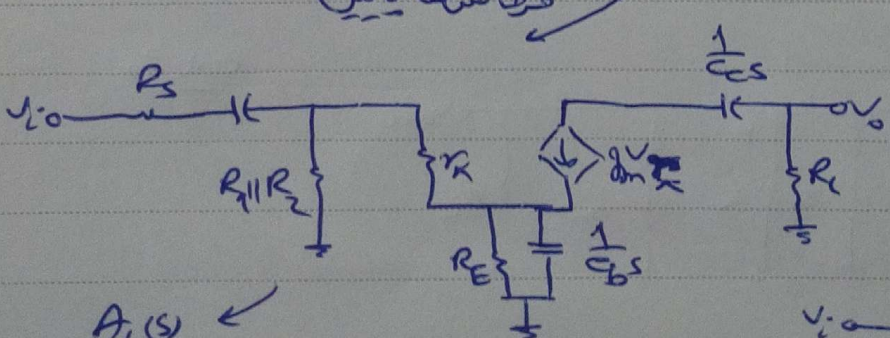 1/CcS
Rs
Vi
Vo
R1||R2
rπ
gmVπ
RL
RE
1/CbS
AL(S)
Vi